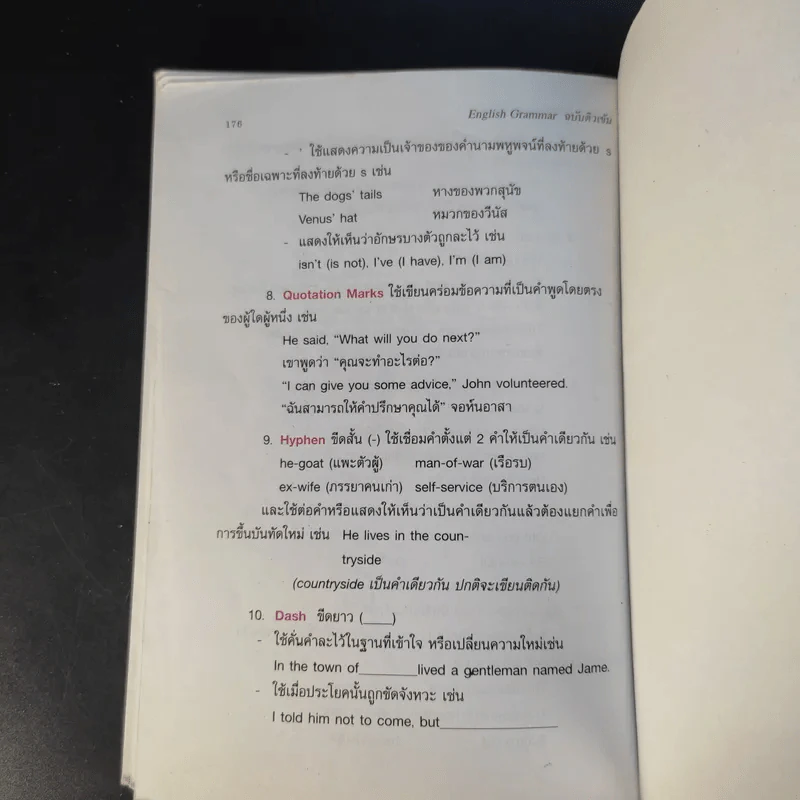 176
English Grammar ฉบับติวเข้ม
- ' ใช้แสดงความเป็นเจ้าของของคำนามพหูพจน์ที่ลงท้ายด้วย s
หรือชื่อเฉพาะที่ลงท้ายด้วย s เช่น
The dogs' tails หางของพวกสุนัข
Venus' hat หมวกของวีนัส
- แสดงให้เห็นว่าอักษรบางตัวถูกละไว้ เช่น
isn't (is not), I've (I have), I'm (I am)
8. Quotation Marks ใช้เขียนคร่อมข้อความที่เป็นคำพูดโดยตรง
ของผู้ใดผู้หนึ่ง เช่น
He said, “What will you do next?”
เขาพูดว่า “คุณจะทำอะไรต่อ?”
“I can give you some advice,” John volunteered.
“ฉันสามารถให้คำปรึกษาคุณได้” จอห์นอาสา
9. Hyphen ขีดสั้น (-) ใช้เชื่อมคำตั้งแต่ 2 คำให้เป็นคำเดียวกัน เช่น
he-goat (แพะตัวผู้) man-of-war (เรือรบ)
ex-wife (ภรรยาคนเก่า) self-service (บริการตนเอง)
และใช้ต่อคำหรือแสดงให้เห็นว่าเป็นคำเดียวกันแล้วต้องแยกคำเพื่อ
การขึ้นบันทัดใหม่ เช่น He lives in the coun-
tryside
(countryside เป็นคำเดียวกัน ปกติจะเขียนติดกัน)
10. Dash ขีดยาว (____)
- ใช้คั่นคำละไว้ในฐานที่เข้าใจ หรือเปลี่ยนความใหม่เช่น
In the town of________lived a gentleman named Jame.
- ใช้เมื่อประโยคนั้นถูกขัดจังหวะ เช่น
I told him not to come, but________________